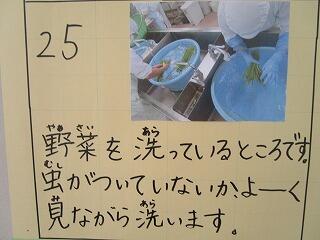 25
野菜を洗っているところです。
虫がついていないか、よーく
見ながら洗います。
やさい あら
むし
み あら